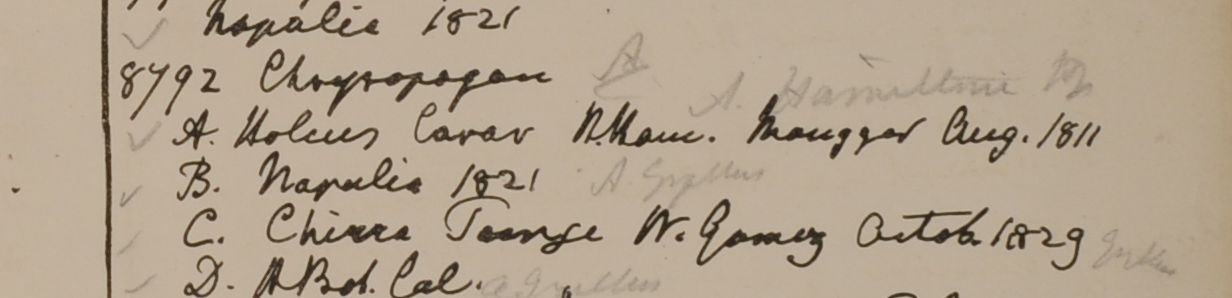 Napalia 1821
8792 Chrysopogon A
A. Hamiltonii
A. Holcus Cavar H.Ham. Maugger Aug. 1811
B. Napalia 1821 A. Gryllus
C. Chirra Toonge W. Gomez Octob. 1829 Gryllus
D. HBot. Cal. a Gryllus